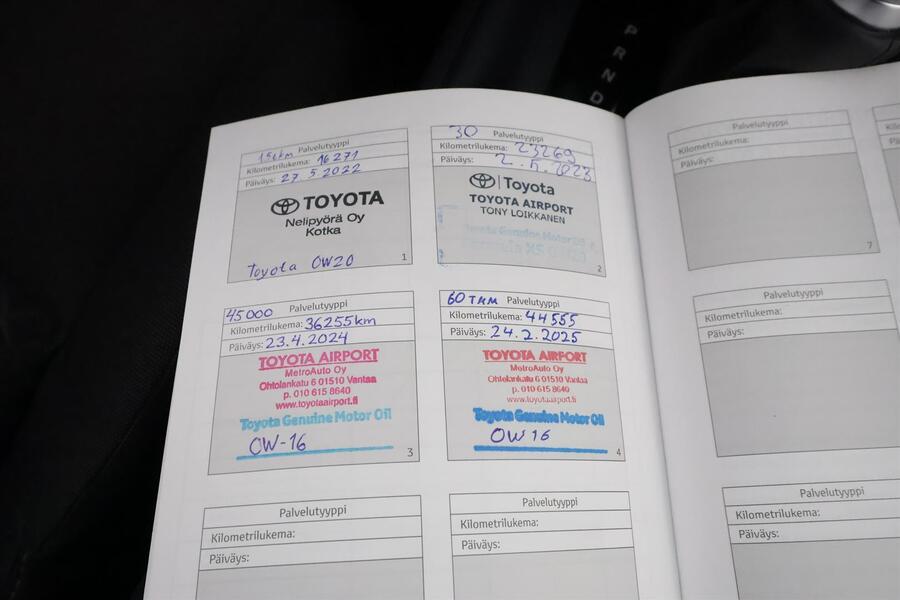 P
R
N
D
15tkm Palvelutyyppi
Kilometrilukema: 16271
Päiväys: 27 5 2022
TOYOTA
Nelipyörä Oy
Kotka
Toyota OW20
1
30 Palvelutyyppi
Kilometrilukema: 23269
Päiväys: 2. 5. 2023
Toyota
TOYOTA AIRPORT
TONY LOIKKANEN
Toyota Genuine Motor Oil
2
45000 Palvelutyyppi
Kilometrilukema: 36255km
Päiväys: 23.4.2024
TOYOTA AIRPORT
MetroAuto Oy
Ohtolankatu 6 01510 Vantaa
p. 010 615 8640
www.toyotaairport.fi
Toyota Genuine Motor Oil
OW-16
3
60TKM Palvelutyyppi
Kilometrilukema: 44555
Päiväys: 24.2.2025
TOYOTA AIRPORT
MetroAuto Oy
Ohtolankatu 6 01510 Vantaa
p. 010 615 8640
www.toyotaairport.fi
Toyota Genuine Motor Oil
OW16
4
Palvelutyyppi
Kilometrilukema:
Päiväys:
Palvelutyyppi
Kilometrilukema:
Päiväys:
Palvelutyyppi
Kilometrilukema:
Päiväys:
7
Palvelutyyppi
Kilometrilukema:
Päiväys:
Palvelutyyppi
Kilometrilukema:
Päiväys: